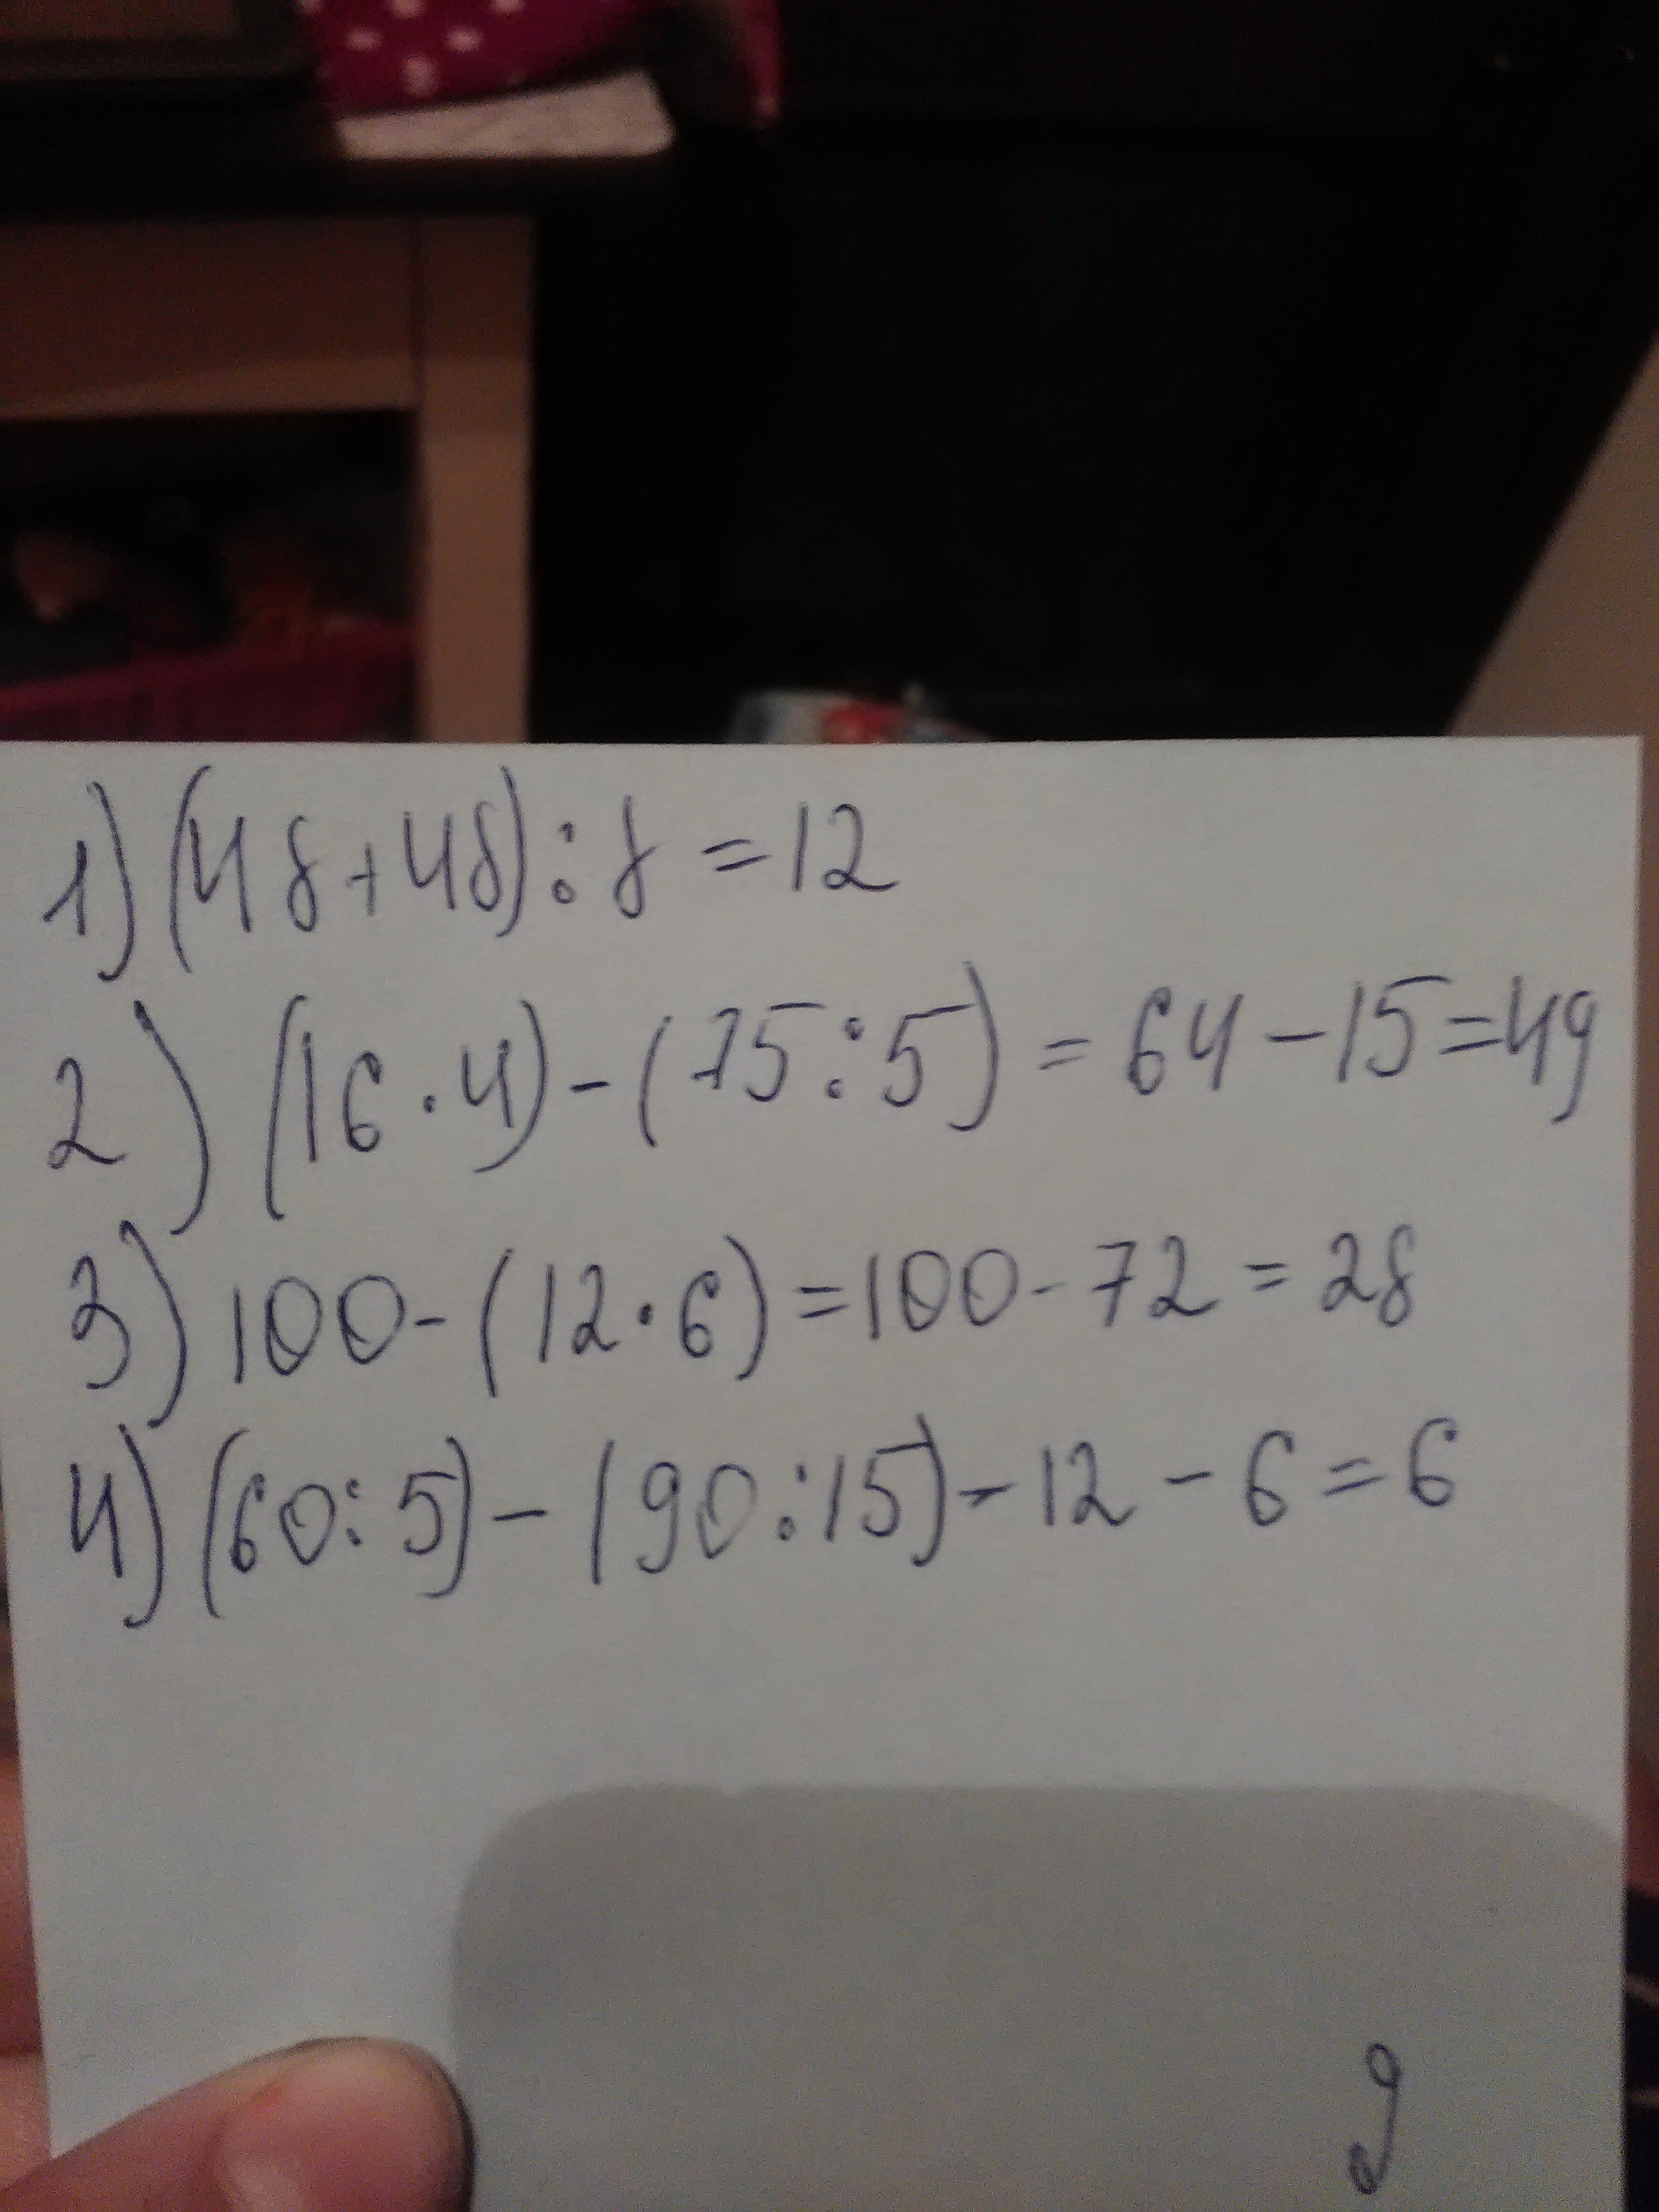 1) (48+48):8 =12
2) (16·4)-(75:5) = 64-15=49
3) 100-(12·6)=100-72=28
4) (60:5)-(90:15)-12-6=6
9